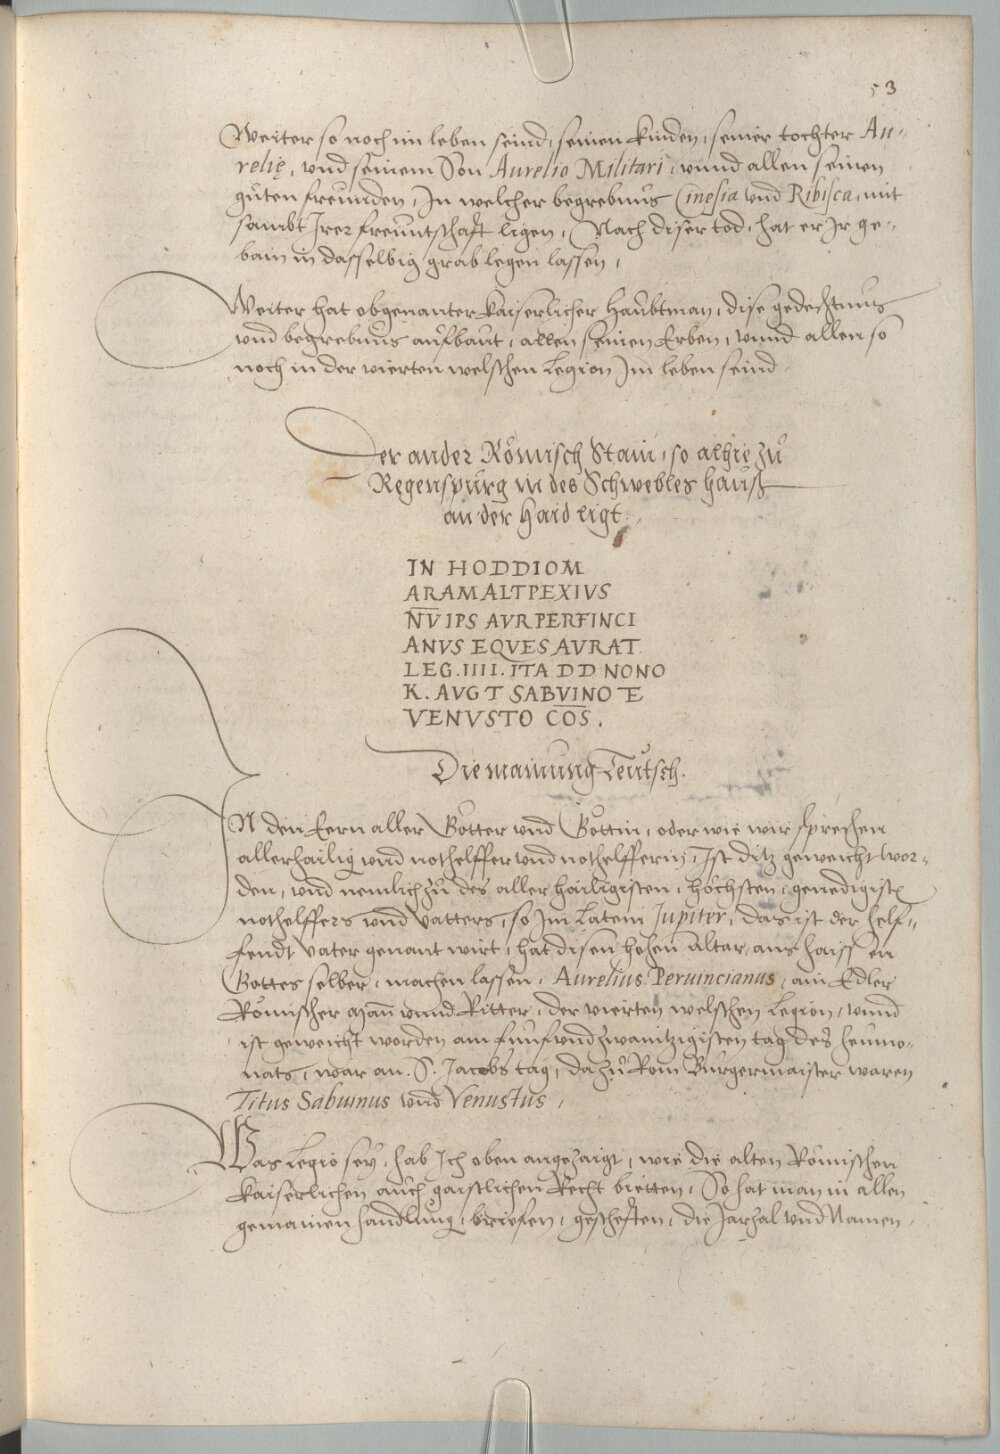 53
Weiter so noch im leben seind, seinen kinden, seiner tochter Au-
relię, vnd seinem Son Aurelio Militari, vnnd allen seinen
gůten freunden, In welcher begrebnus Cinesia vnd Ribisca, mit
sambt Irer freuntschafft ligen, Nach diser tod, hat er Ir ge-
bain in dasselbig grab legen lassen,
Weiter hat obgenanter kaiserlicher Haubtman, dise gedechtnus
vnd begrebnus aufbaut, allen seinen Erben, vnnd allen so
noch in der vierten welschen Legion Im leben seind.
Der ander Römisch Stain, so alhie zů
Regenspurg in des Schwebles hauß
an der Haid ligt.
IN HODDIOM
ARAM ALTPEXIVS
N̅V̅IPS AVR PERFINCI
ANVS EQVES AVRAT
LEG.IIII.ITA DD NONO
K. AVGT SABVINO TE
VENVSTO COS.
Die mainung Teutsch.
IN den Eern aller Götter vnd Göttin, oder wie wir sprechen
allerhailig vnd nothelffer vnd nothelfferin, Ist ditz geweicht wor-
den, vnd nemlich zů des aller hailigisten, höchsten, genedigistē
nothelffers vnd Vatters, so Im Latein Jupiter, das ist der helf-
fendt Vater genant wirt, hat disen hohen altar, aus haissen
Gottes selber, machen lassen, Aurelius Peruincianus, ain Edler
Römischer Mañ vnnd Ritter, der vierten welschen Legion, vnnd
ist geweicht worden am funfvndzwaintzigisten tag des heumo-
nats, war an S. Jacobs tag, da zů Rom Burgermaister waren
Titus Sabuinus vnd Venustus,
Was Legio sey, hab Ich oben angezaigt, wie die alten Römischen
Kaiserlichen auch gaistlichen Recht bietten, So hat man in allen
gemainen handlung, brieefen, gescheften, die Jarzal vnd Namen